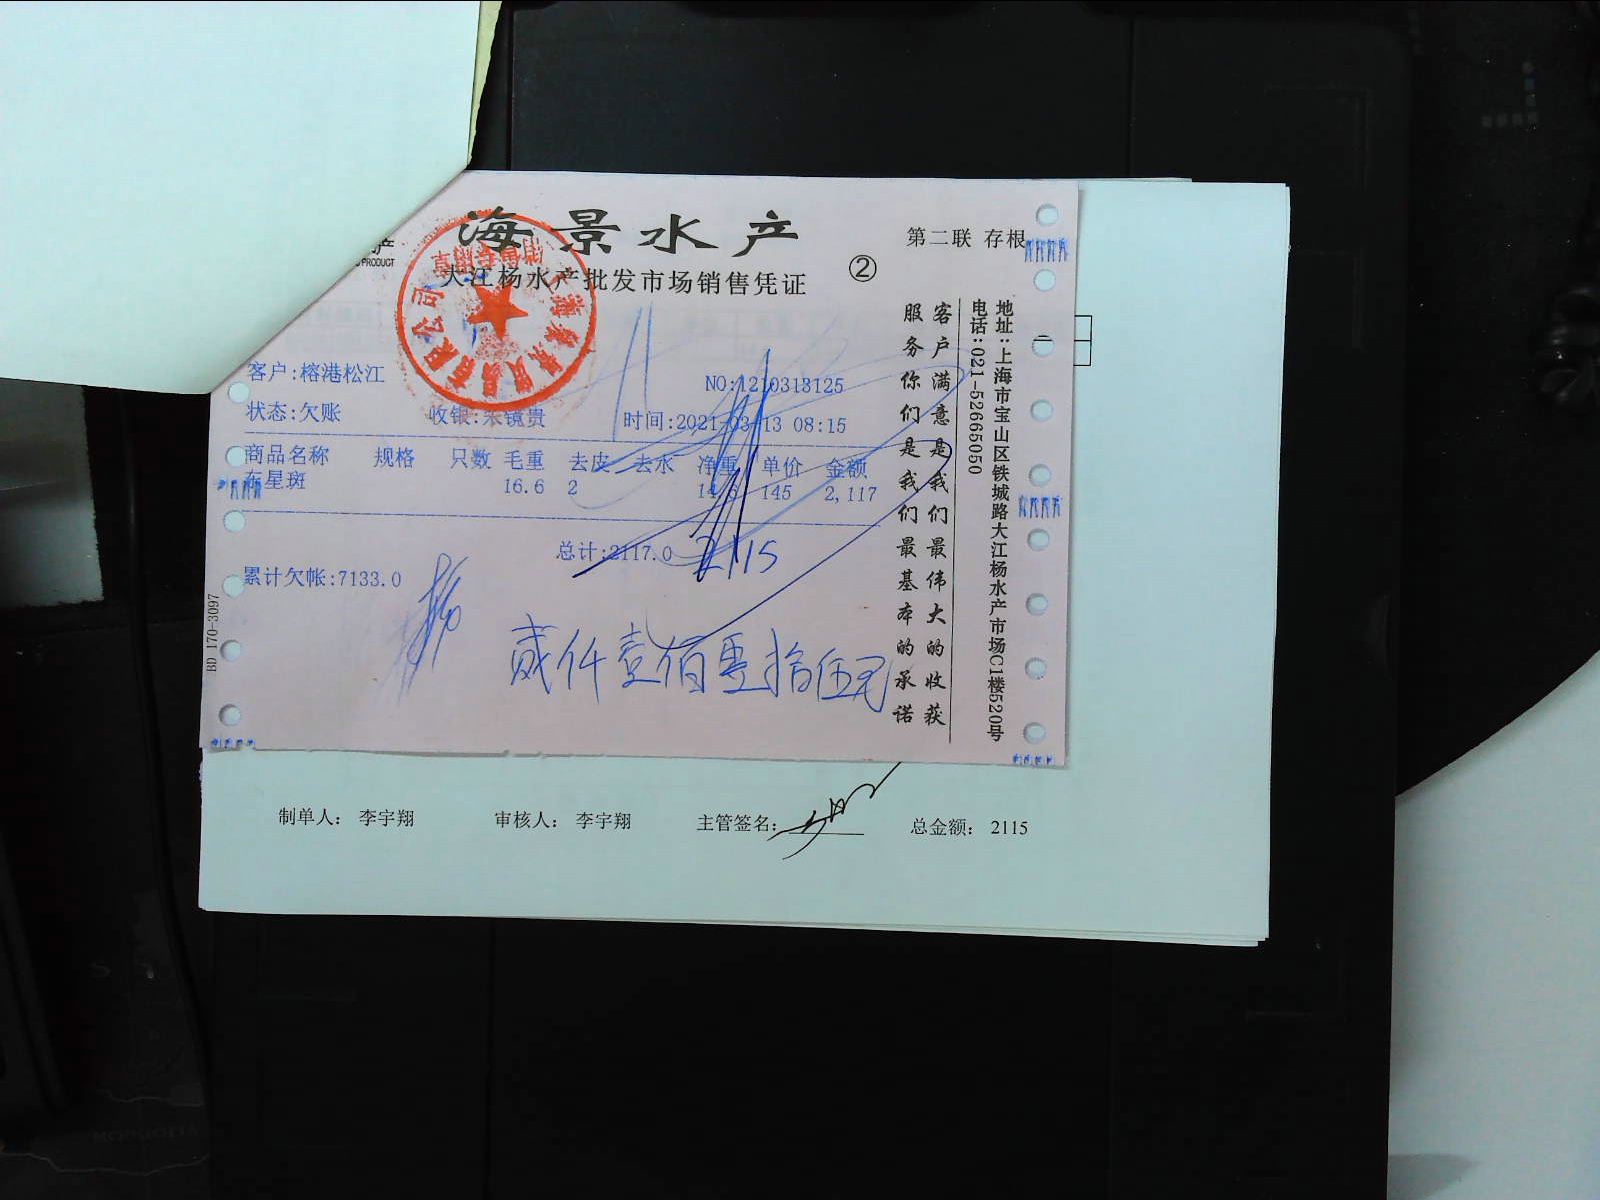 海景水产
第二联 存根
PRODUCT
大江杨水产批发市场销售凭证
②
客户:榕港松江
NO:1210313125
状态:欠账
收银:
镜贵
时间:2021-03-13 08:15
商品名称 规格 只数 毛重 去皮 去水 净重 单价 金额
东星斑 16.6 2 14.6 145 2,117
总计:2117.0
2115
累计欠帐:7133.0
贰仟壹佰零拾伍元
BD 170-3097
客户满意是我们最伟大的收获
服务你们是我们最基本的承诺
地址:上海市宝山区铁城路大江杨水产市场C1楼520号
电话:021-52665050
制单人: 李宇翔 审核人: 李宇翔 主管签名: 总金额: 2115